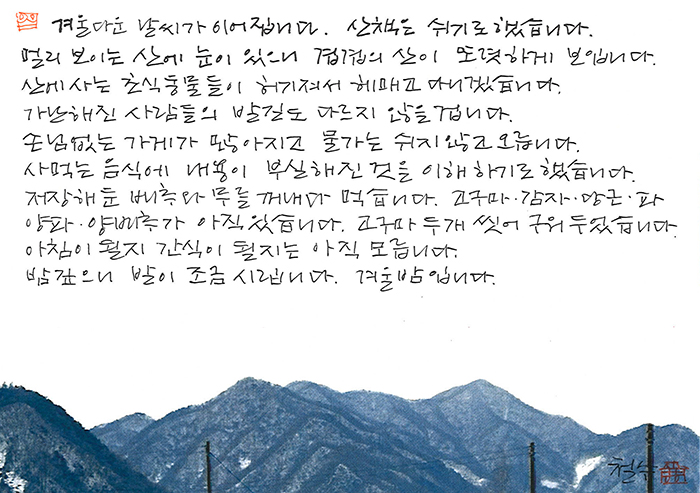 겨울다운 날씨가 이어집니다. 산책은 쉬기로 했습니다.
멀리 보이는 산에 눈이 있으니 겹겹의 산이 또렷하게 보입니다.
산에 사는 초식동물들이 허기져서 헤매고 다니겠습니다.
가난해진 사람들의 발길도 다르지 않을 겁니다.
손님없는 가게가 많아지고 물가는 쉬지 않고 오릅니다.
사먹는 음식에 내용이 부실해진 것을 이해하기로 했습니다.
저장해 둔 배추와 무를 꺼내다 먹습니다. 고구마·감자·당근·파
양파·양배추가 아직 있습니다. 고구마 두개 씻어 구워 두었습니다.
아침이 될지 간식이 될지는 아직 모릅니다.
밤 깊으니 발이 조금 시립니다. 겨울밤입니다.
철수